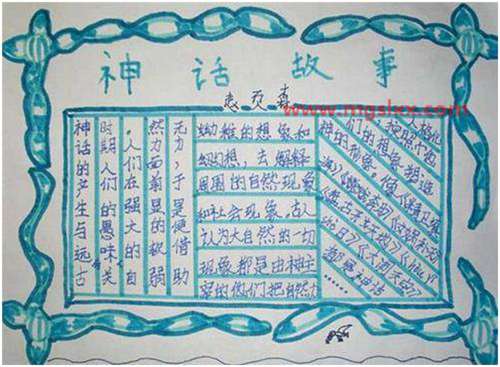 神话故事
www.mgslxx.com
神话的产生与远古
时期人们的愚昧关
。人们在强大的自
然力面前显的软弱
无力，于是便借助
幼稚的想象和
幻想，去解解
周围的自然现象
和社会现象。古人
认为大自然的一切
现象都是由神主
宰的他们把自然力
人格化
们的想象塑造
神的形象。像《精卫填
海》
都是神话